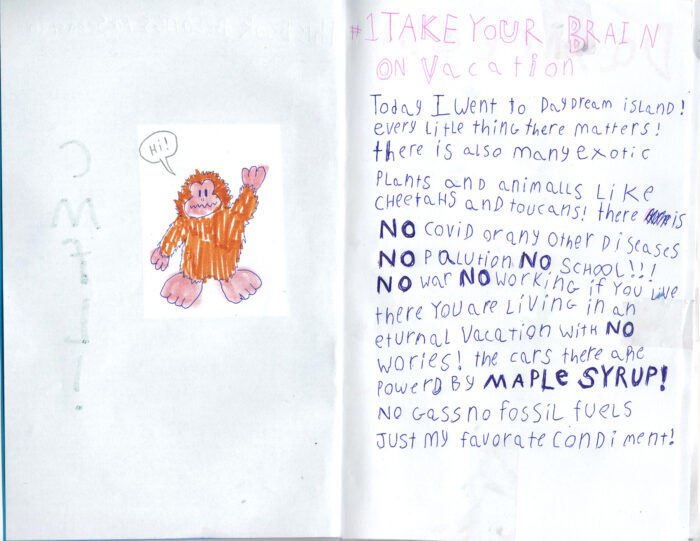 Hi!
#1 TAKE YOUR BRAIN
ON Vacation
Today I went to Daydream island!
every little thing there matters!
there is also many exotic
Plants and animalls like
CHeetaHs and toucans! there is
NO Covid or any other Diseases
NO Palution NO SCHOOL!!!
NO war NO working if you live
there you are Living in an
eturnal vacation with NO
wories! the cars there are
Powerd By MAPLe SYRUP!
No Gass no fossil fuels
Just my favorate condiment!